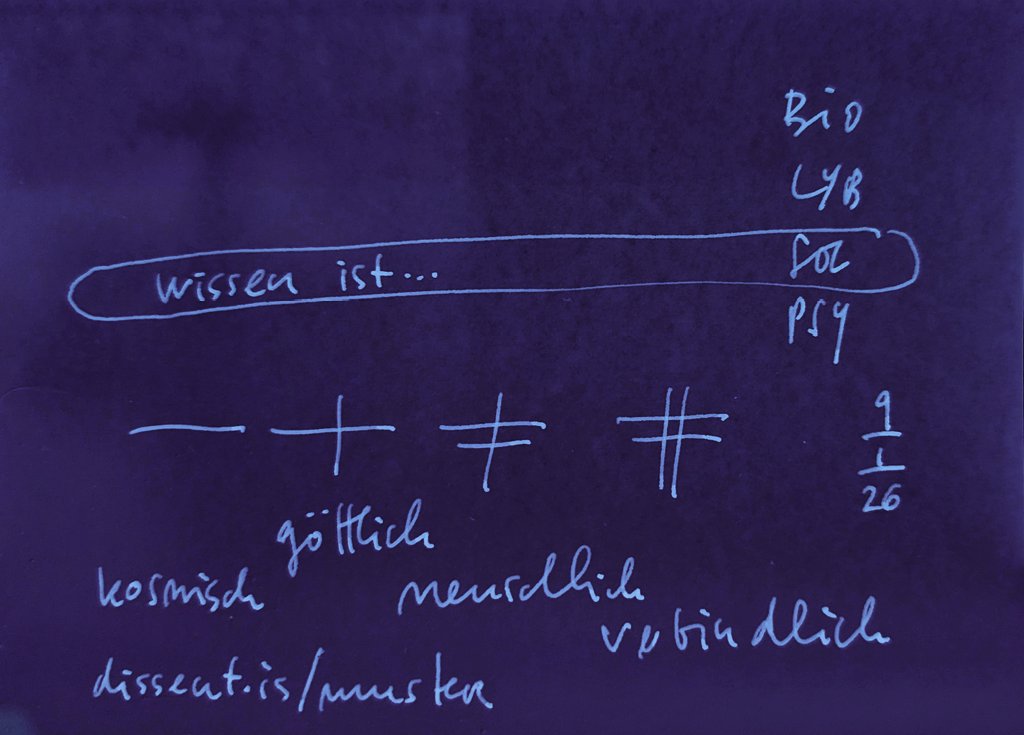 Bio
LYB
wissen ist... Soz
PSY
9
1
26
göttlich
kosmisch menschlich
verbindlich
dissent.is/muster